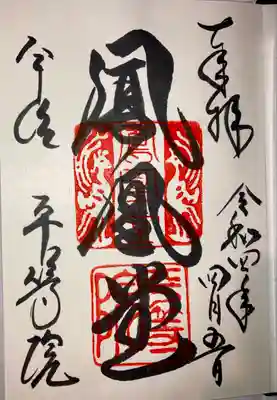 奉拝
令和四年四月五日
鳳凰堂
平等院